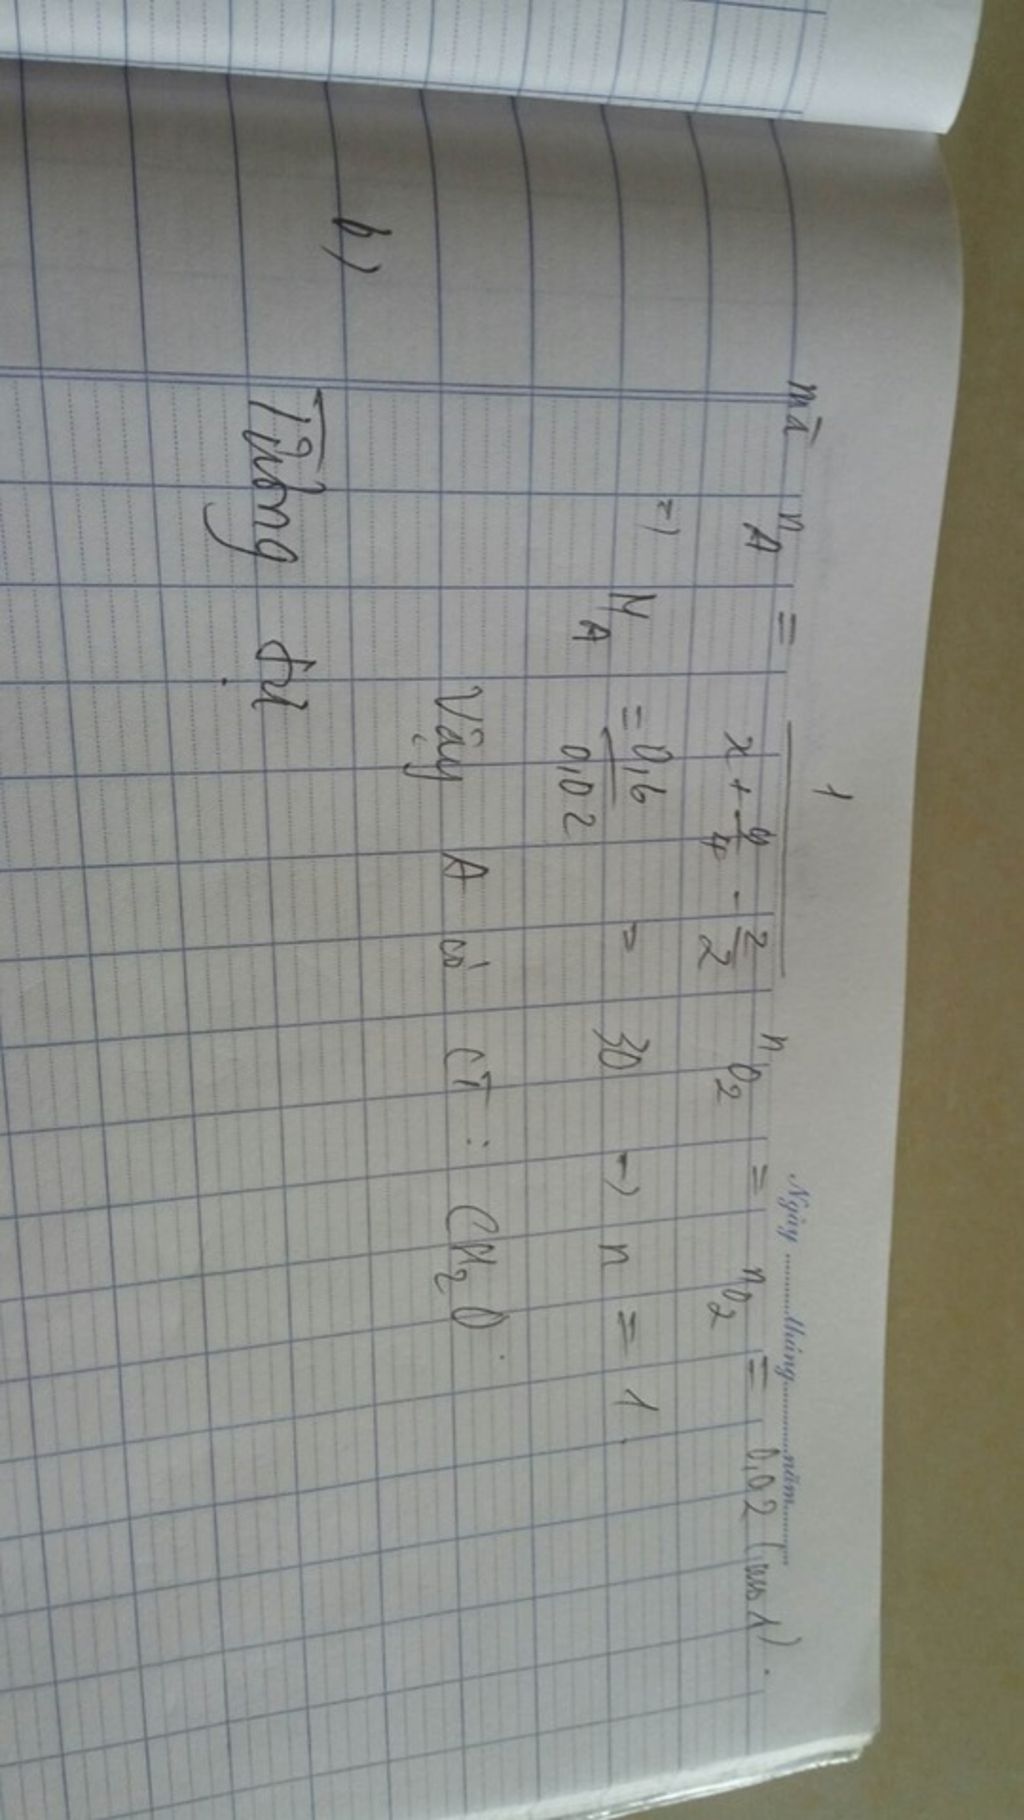 Ngày ........ tháng ........ năm ........
mà n_A = 1/(x + y/4 - z/2) n_O2 = n_O2 = 0,02 (mol).
=) M_A = 0,6/0,02 = 30 -) n = 1.
Vậy A có CT : CH2O.
b)
Tương tự